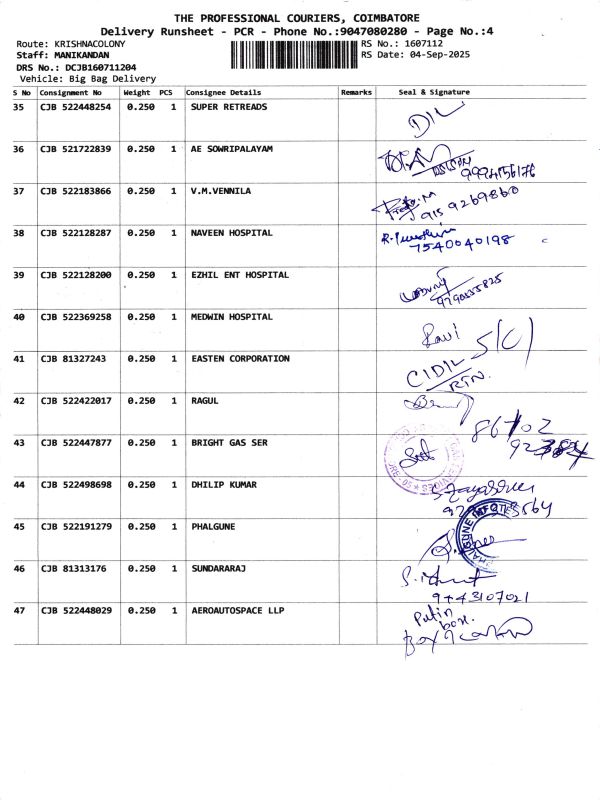 THE PROFESSIONAL COURIERS, COIMBATORE
Delivery Runsheet - PCR - Phone No.:9047080280 - Page No.:4
Route: KRISHNACOLONY RS No.: 1607112
Staff: MANIKANDAN RS Date: 04-Sep-2025
DRS No.: DCJB160711204
Vehicle: Big Bag Delivery
S No Consignment No Weight PCS Consignee Details Remarks Seal & Signature
35 CJB 522448254 0.250 1 SUPER RETREADS DIL
36 CJB 521722839 0.250 1 AE SOWRIPALAYAM
37 CJB 522183866 0.250 1 V.M.VENNILA
915 9269860
38 CJB 522128287 0.250 1 NAVEEN HOSPITAL
7540040198
39 CJB 522128200 0.250 1 EZHIL ENT HOSPITAL
9790535825
40 CJB 522369258 0.250 1 MEDWIN HOSPITAL Ravi
41 CJB 81327243 0.250 1 EASTEN CORPORATION CIDIL
RTN.
42 CJB 522422017 0.250 1 RAGUL
86702
43 CJB 522447877 0.250 1 BRIGHT GAS SER
44 CJB 522498698 0.250 1 DHILIP KUMAR
45 CJB 522191279 0.250 1 PHALGUNE
46 CJB 81313176 0.250 1 SUNDARARAJ
9443107021
47 CJB 522448029 0.250 1 AEROAUTOSPACE LLP Putin
box.